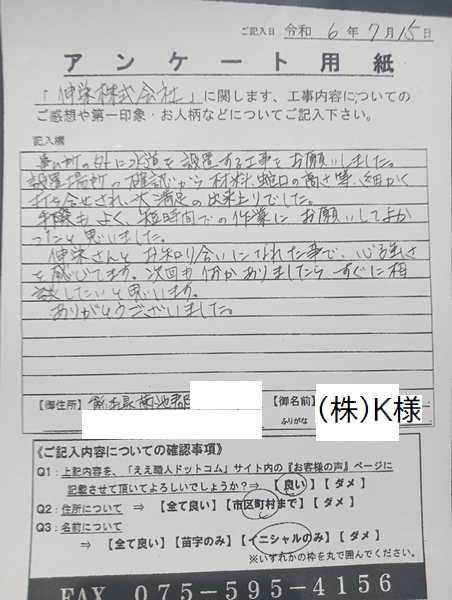 ご記入日 令和 6年 7月 15日
アンケート用紙
「伸栄株式会社」に関します、工事内容についての
ご感想や第一印象・お人柄などについてご記入下さい。
記入欄
事務所の外に水道を設置する工事をお願いしました。
設置場所の確認から材料、蛇口の高さ等、細かく
打ち合せされ、大満足の出来上りでした。
手際もよく、短時間での作業にお願いしてよか
ったと思いました。
伸栄さんとお知り合いになれた事で、心強さ
を感じてます。次回も何かありましたらすぐに相
談したいと思います。
ありがとうございました。
【御住所】 熊本県菊池郡
【御名前】
ふりがな
(株)K様
《ご記入内容についての確認事項》
Q1:上記内容を、「ええ職人ドットコム」サイト内の『お客様の声』ページに
記載させて頂いてよろしいでしょうか?⇒【良い】【ダメ】
Q2:住所について ⇒【全て良い】【市区町村まで】【ダメ】
Q3:名前について
⇒【全て良い】【苗字のみ】【イニシャルのみ】【ダメ】
※いずれかの枠を丸で囲んでください。
FAX 075-595-4156